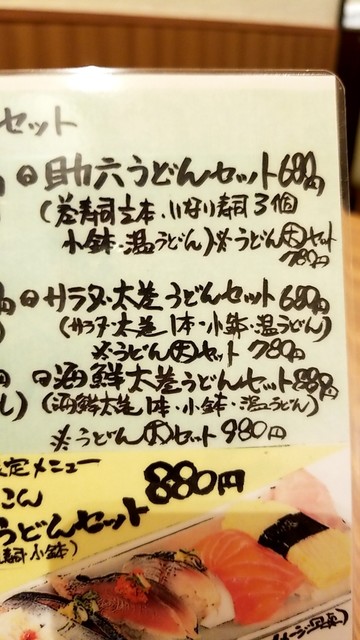 セット
助六うどんセット680円
(巻寿司½本・いなり寿司3個
小鉢・温うどん)※うどん大セット
780円
サラダ太巻うどんセット680円
(サラダ太巻1本・小鉢・温うどん)
※うどん大セット 780円
海鮮太巻うどんセット880円
(海鮮太巻1本・小鉢・温うどん)
※うどん大セット 980円
定メニュー
880円
うどんセット
寿司小鉢)